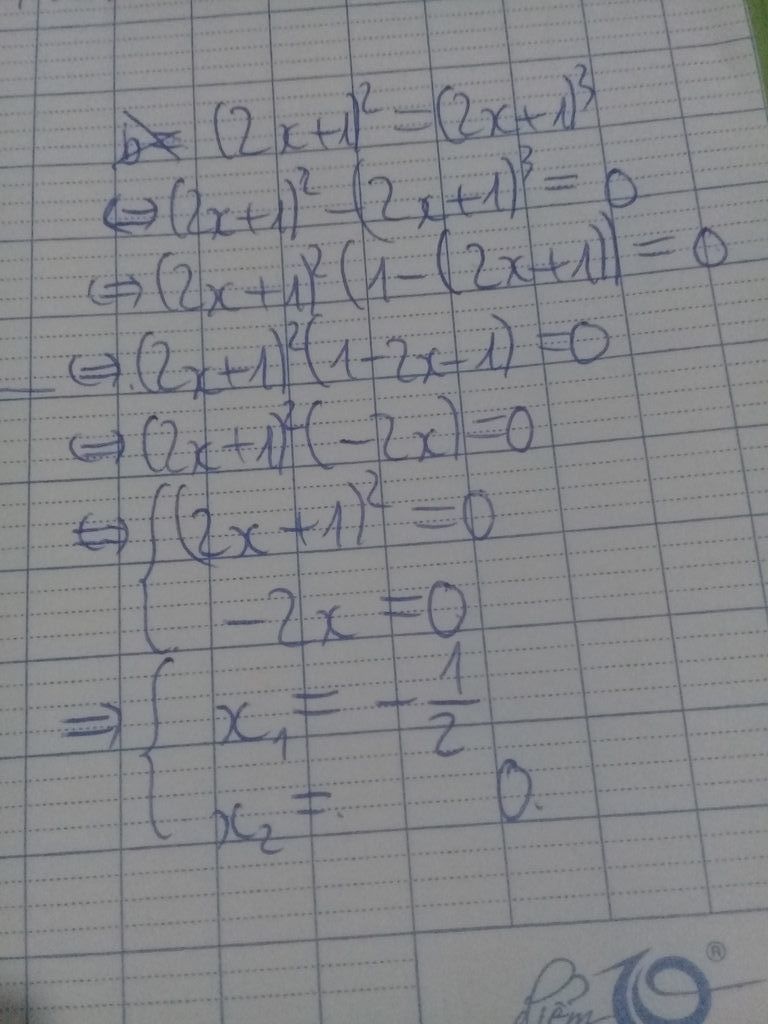 (2x+1)² = (2x+1)³
⇔ (2x+1)² - (2x+1)³ = 0
⇔ (2x+1)² (1-(2x+1)) = 0
⇔ (2x+1)² (1-2x-1) = 0
⇔ (2x+1)² (-2x) = 0
⇔ { (2x+1)² = 0
-2x = 0
⇒ { x₁ = - 1/2
x₂ = 0.
điểm 10 ®